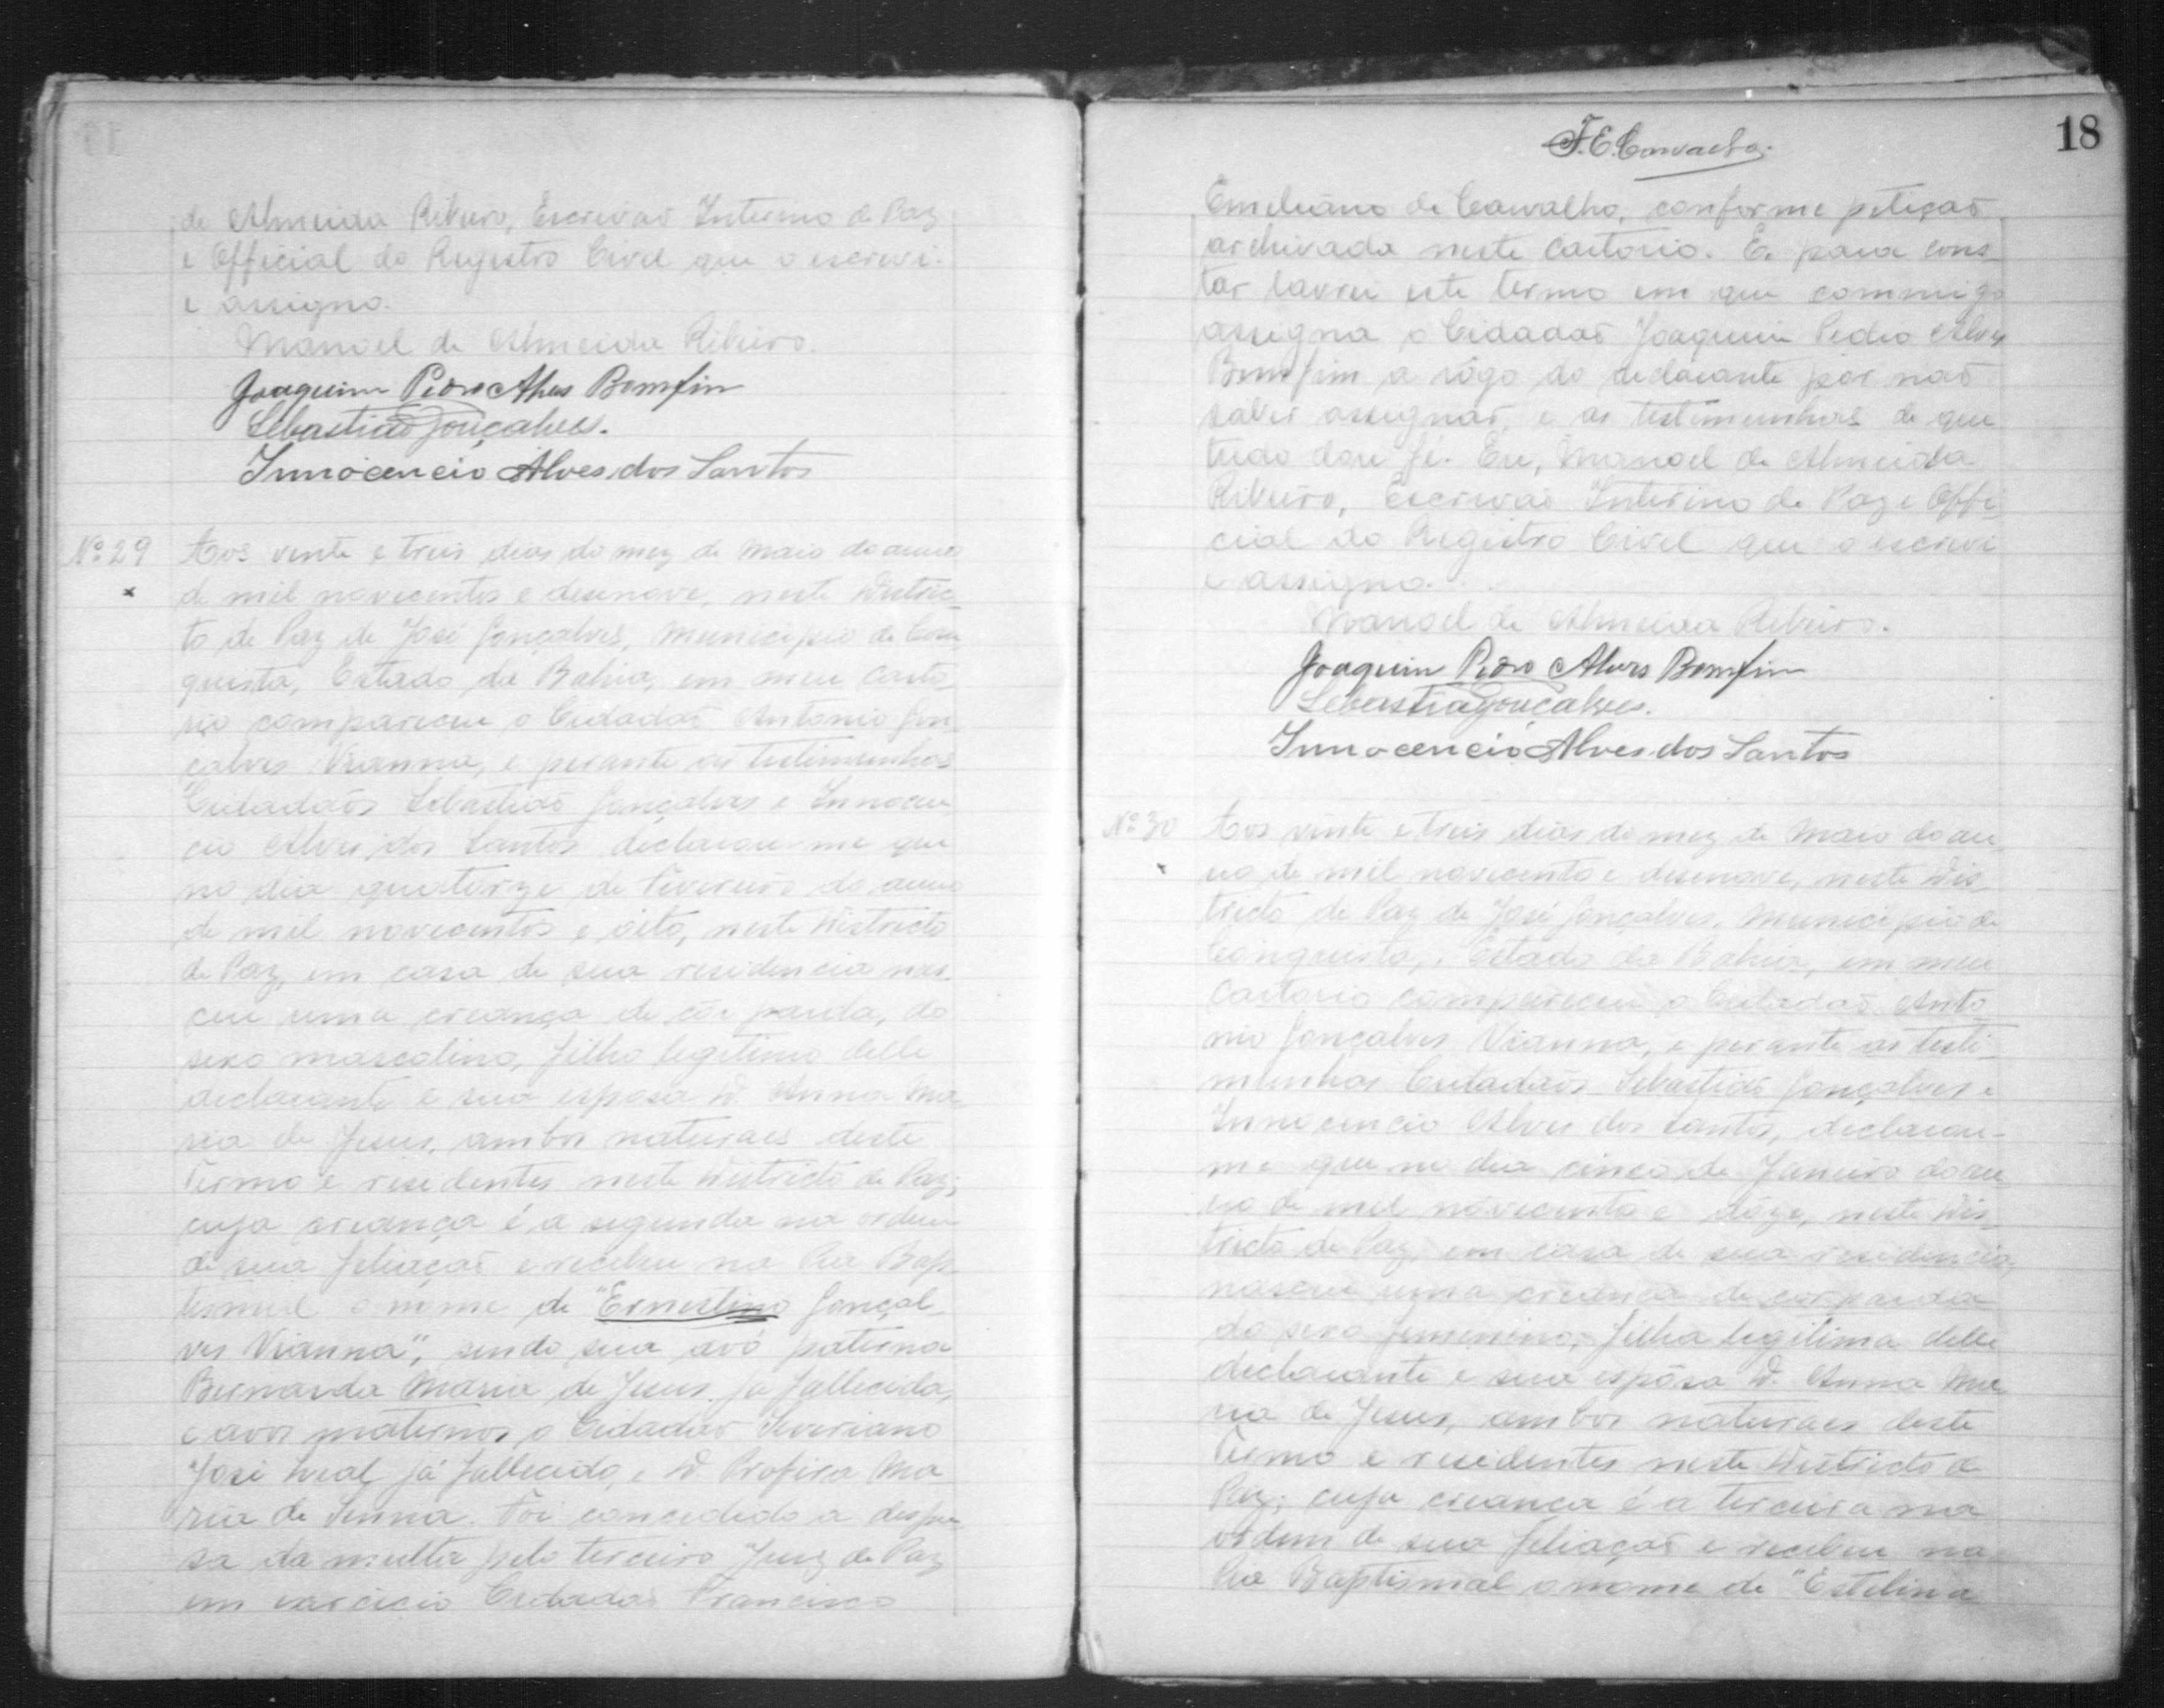 de Almeida Ribeiro, Escrivaõ Interino de Paz
e Official do Registro Civel que o escrevi
e assigno.
Manoel de Almeida Ribeiro.
Joaquim Pedro Alves Bomfim
Sebastião Gonçalves.
Innocencio Alves dos Santos
Nº 29
Aos vinte e treis dias do mez de Maio do anno
de mil novecentos e desenove, neste Distric-
to de Paz de José Gonçalves, Municipio de Con-
quista, Estado da Bahia, em meu Carto-
rio compareceu o Cidadaõ Antonio Gon-
çalves Vianna, e perante as testimunhas
Cidadaõs Sebastiaõ Gonçalves e Innocen-
cio Alves dos Santos declarou-me que
no dia quatorze de Fevereiro do anno
de mil novecentos e oito, neste Districto
de Paz, em casa de sua residencia nas-
ceu uma creança de côr parda, do
sexo mascolino, filho legitimo delle
declarante e sua esposa D. Anna Ma-
ria de Jesus, ambos naturaes deste
Termo e residentes neste Districto de Paz;
cuja creança é a segunda na ordem
de sua filiaçaõ e recebeu na Pia Bap-
tismal o nome de "Ernestino Gonçal-
ves Vianna", sendo sua avó paterna
Bernarda Maria de Jesus já fallecida,
e avós maternos o Cidadaõ Severiano
José Leal já fallecido, e D. Profira Ma-
ria de Senna. Foi concedido a despen-
sa da multa pelo terceiro Juiz de Paz
em exercicio Cidadaõ Francisco
18
F. E. Carvalho.
Emeliano de Carvalho, conforme petiçaõ
archivada neste Cartorio. E, para cons-
tar lavrei este termo em que commigo
assigna o Cidadaõ Joaquim Pedro Alves
Bomfim a rôgo do declarante por naõ
saber assignar, e as testimunhas de que
tudo dou fé. Eu, Manoel de Almeida
Ribeiro, Escrivaõ Interino de Paz e Offi-
cial do Registro Civel que o escrevi
e assigno.
Manoel de Almeida Ribeiro.
Joaquim Pedro Alves Bomfim
Sebastião Gonçalves.
Innocencio Alves dos Santos
Nº 30
Aos vinte e treis dias do mez de Maio do an-
no de mil novecentos e desenove, neste Dis-
tricto de Paz de José Gonçalves, Municipio de
Conquista, Estado da Bahia, em meu
Cartorio compareceu o Cidadaõ Anto-
nio Gonçalves Vianna, e perante as testi-
munhas Cidadaõs Sebastiaõ Gonçalves e
Innocencio Alves dos Santos, declarou-
me que no dia cinco de Janeiro do an-
no de mil novecentos e dôze, neste Dis-
tricto de Paz, em casa de sua residencia,
nasceu uma creança de côr parda
do sexo femenino, filha legitima delle
declarante e sua espôsa D. Anna Ma-
ria de Jesus, ambos naturaes deste
Termo e residentes neste Districto de
Paz; cuja creança é a terceira na
ordem de sua filiaçaõ e recebeu na
Pia Baptismal o nome de "Estelina